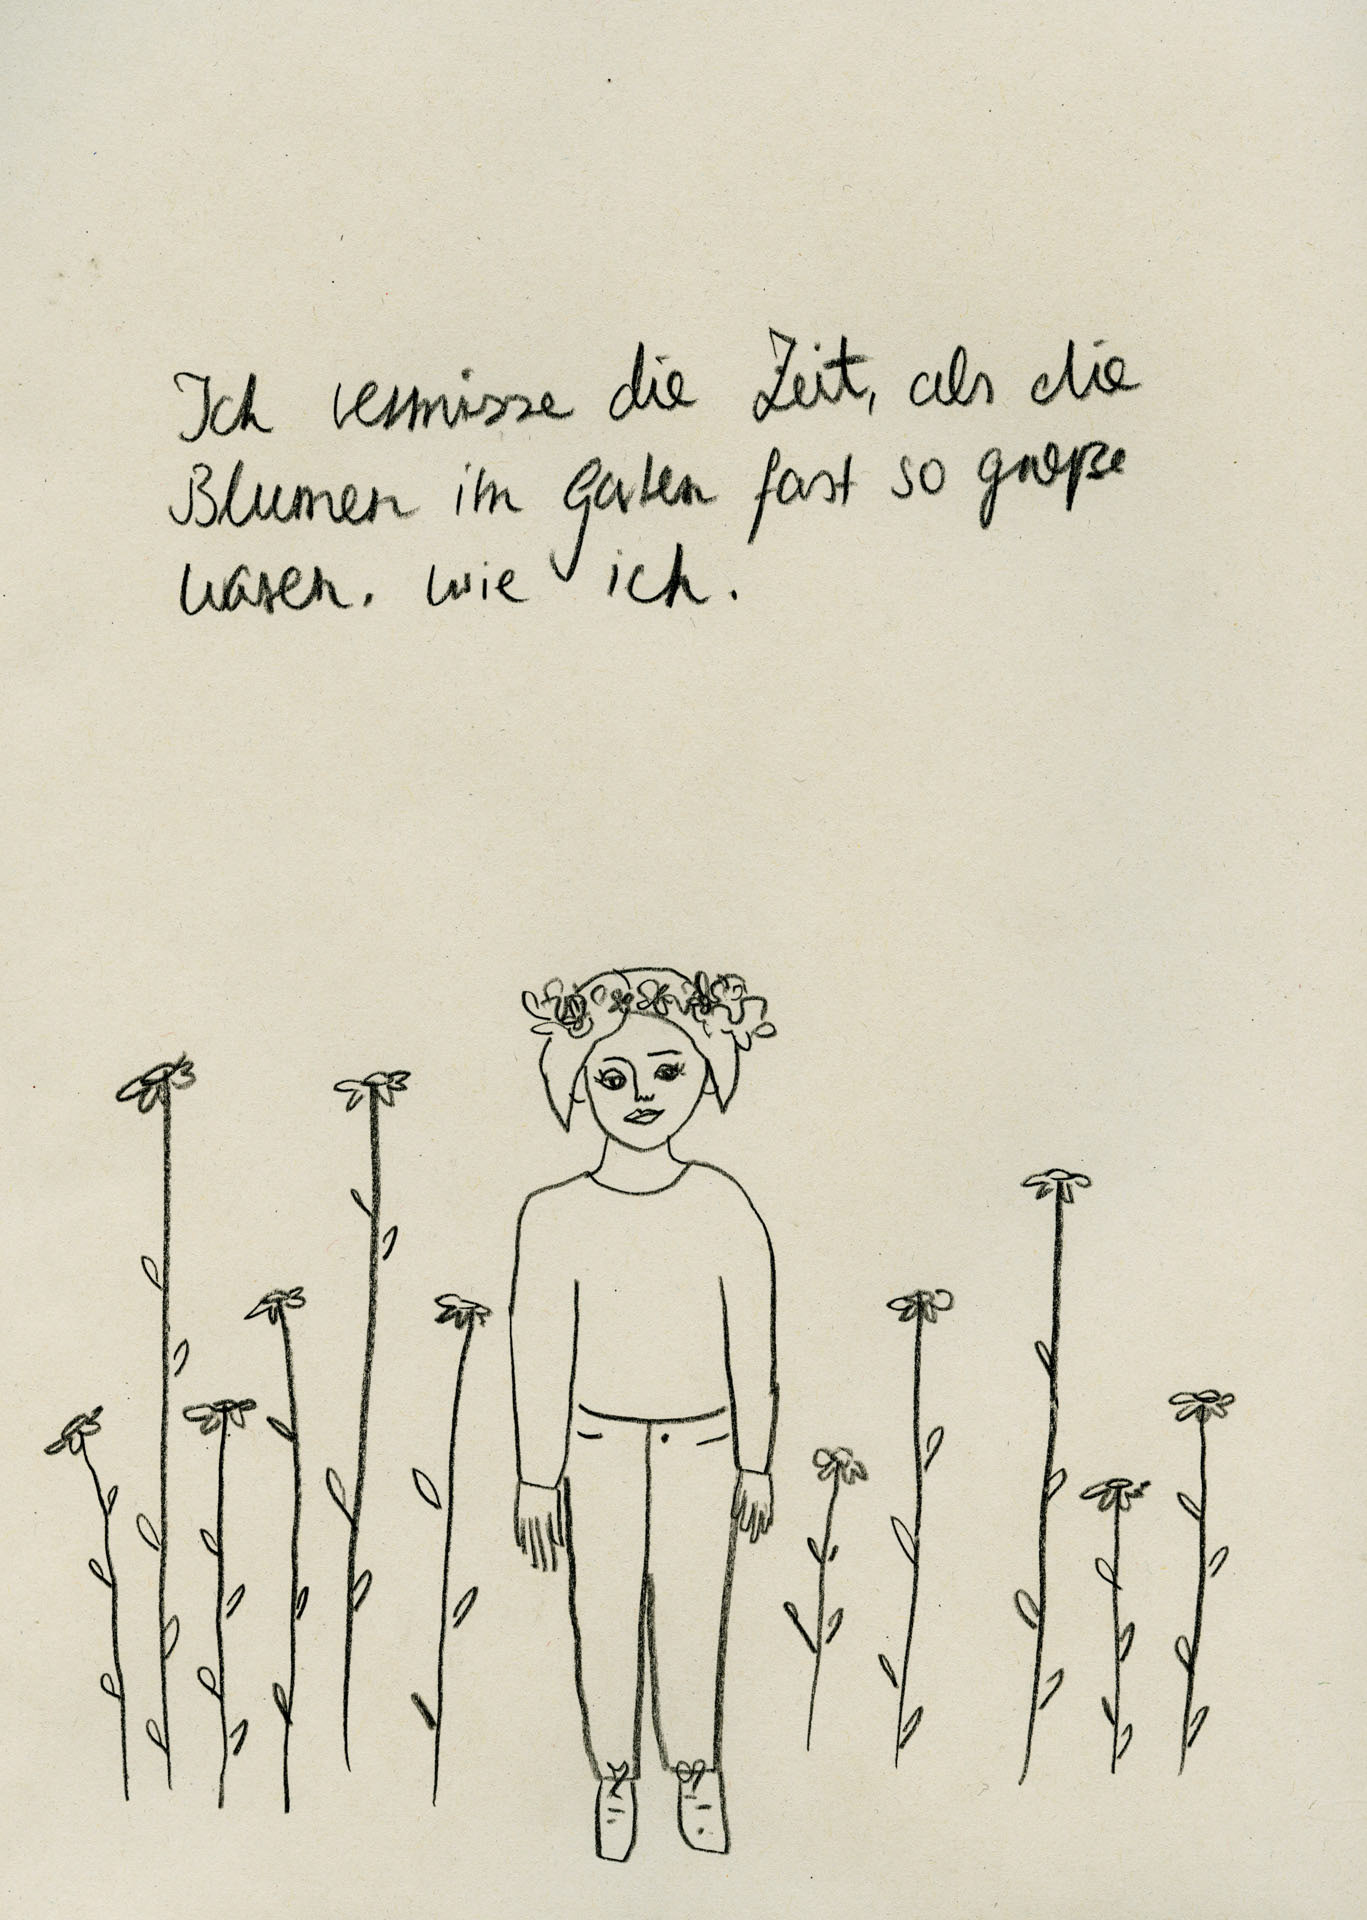 Ich vermisse die Zeit, als die
Blumen im Garten fast so große
waren. wie ich.